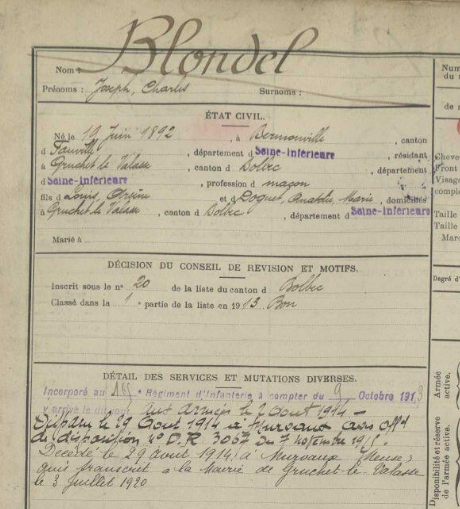 Blondel
Nom :
Prénoms : Joseph, Charles Surnoms :
ÉTAT CIVIL.
Né le 19 Juin 1892, à Bermonville, canton
d Fauville, département d Seine-Inférieure, résidant
à Gruchet le Valasse, canton d Bolbec, département
d Seine-Inférieure, profession d maçon
fils d Louis, et d Anathlie, Marie, domiciliés
à Gruchet le Valasse, canton d Bolbec, département d Seine-Inférieure
Marié à
DÉCISION DU CONSEIL DE REVISION ET MOTIFS.
Inscrit sous le n° 20 de la liste du canton d Bolbec
Classé dans la 1e partie de la liste en 1913 Bon
DÉTAIL DES SERVICES ET MUTATIONS DIVERSES.
Incorporé au Régiment d'Infanterie à compter du 9 Octobre 1913
y arrivé le Aux armées le Aout 1914 -
Disparu le 29 Aout 1914 à Murvaux avis offel
de disparition N° D.R 3067 du 7 novembre 191
Décédé le 29 aout 1914 à Murvaux (Meuse)
avis transcrit à la Mairie de Gruchet-le-Valasse
le 3 Juillet 1920
Num
du r
de r
Cheve
Front
Visage
complé
Taille
Taille
Mar
Degré d'
Armée
active.
Disponibilité et réserve
de l'armée active.